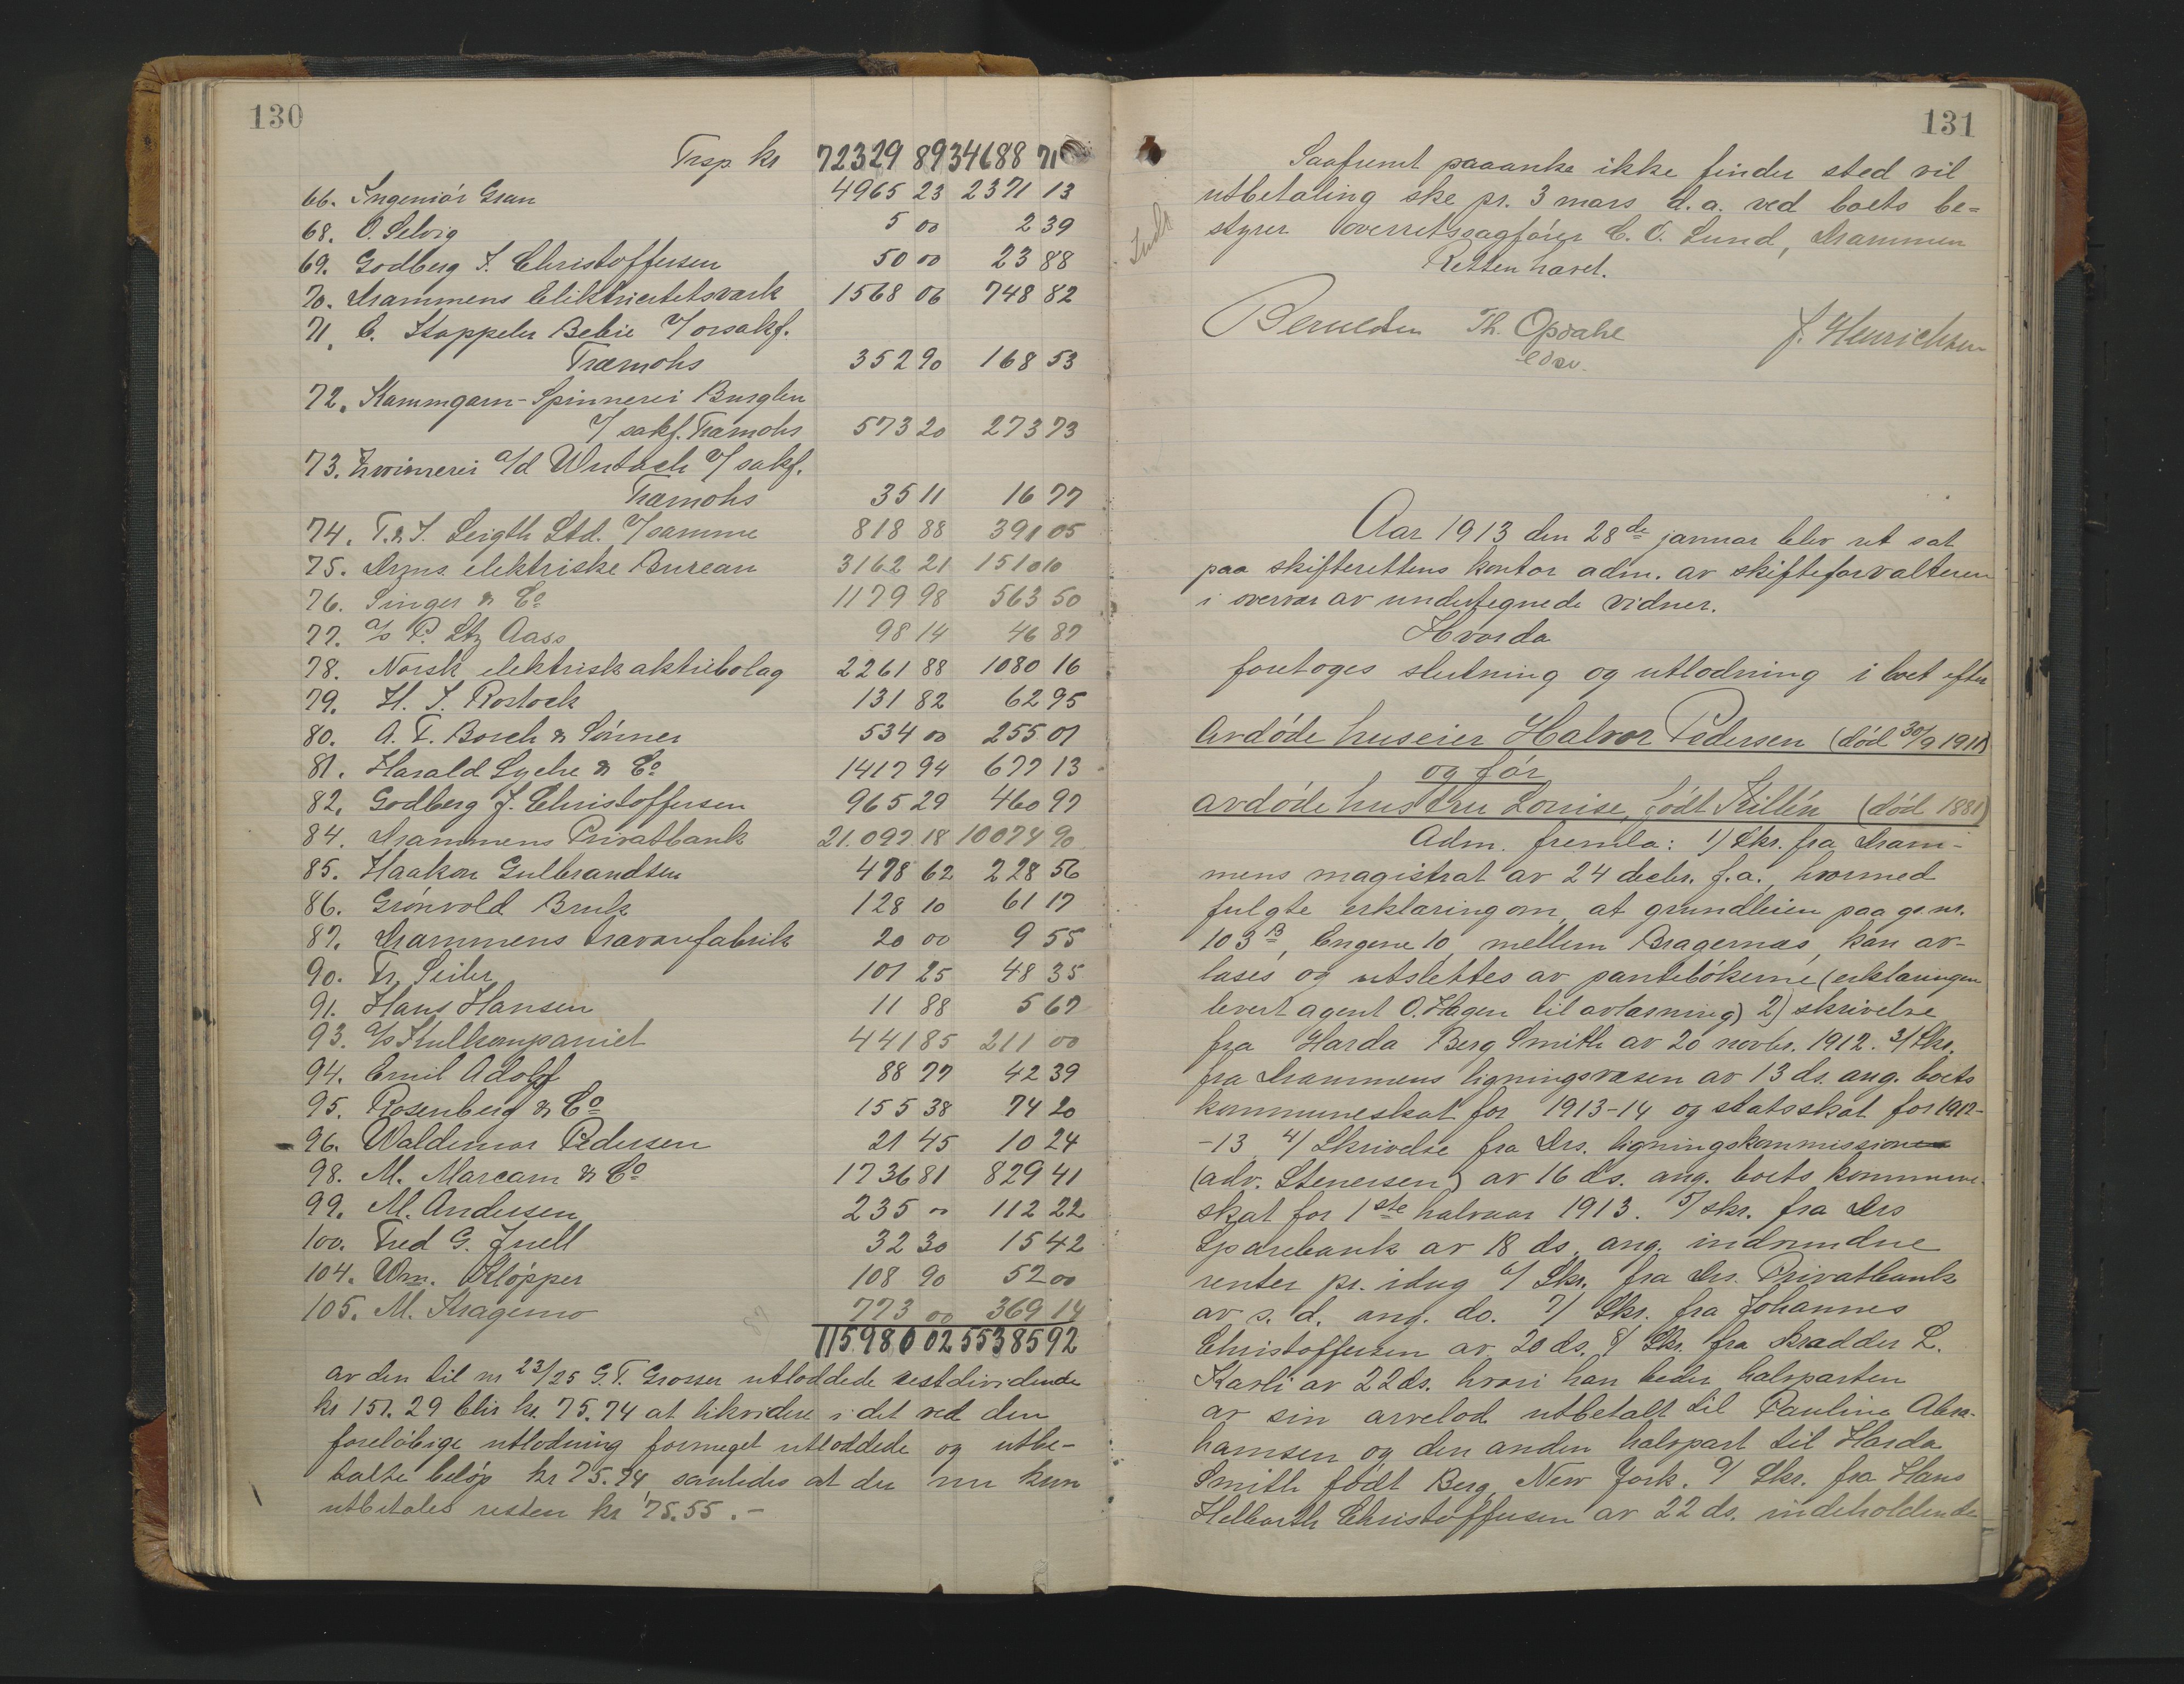 130
Trsp. kr 72329 89 34688 71
66. Ingeniör Gran 4965 23 2371 13
68. O. Selvig 5 00 2 39
69. Godberg J. Christoffersen 50 00 23 88
70. Drammens Elektricitetsverk 1568 06 748 82
71. C. Stappeler Bebie v/ orsakf.
Træmohs 352 90 168 53
72. Kammgarn-Spinnerei Burglen
v/ sakf. Træmohs 573 20 273 73
73. Zwirnerei a/d Wutach v/ sakf.
Træmohs 35 11 16 77
74. T. & J. Leigth Ltd. v/ samme 818 88 391 05
75. Drms. elektriske Bureau 3162 21 1510 10
76. Singer & Co 1179 98 563 50
77. a/s P. Ltz Aass 98 14 46 87
78. Norsk elektrisk aktiebolag 2261 88 1080 16
79. H. J. Rostock 131 82 62 95
80. A. T. Bosch & Sönner 534 00 255 01
81. Harald Lyche & Co 1417 94 677 13
82. Godberg J. Christoffersen 965 29 460 97
84. Drammens Privatbank 21.097 18 10074 90
85. Haakon Gulbrandsen 478 62 228 56
86. Grönvold Bruk 128 10 61 17
87. Drammens travarefabrik 20 00 9 55
90. Fr. Seiler 101 25 48 35
91. Hans Hansen 11 88 5 67
93. a/s Kulkompaniet 441 85 211 00
94. Emil Adolf 88 77 42 39
95. Rosenberg & Co 155 38 74 20
96. Waldemar Pedersen 21 45 10 24
98. M. Marcam & Co 1736 81 829 41
99. M. Andersen 235 00 112 22
100. Fred G. Juell 32 30 15 42
104. Wm. Klöpper 108 90 52 00
105. M. Kragemo 773 00 369 14
115980 02 55385 92
av den til nr 23/25 G. T. Grosser utloddede restdividende
kr 151.29 blir kr. 75.74 at likvidere i det ved den
foreløbige utlodning formeget utloddede og utbe-
talte beløp kr 75.74, saaledes at der nu kun
utbetales resten kr 75.55.-
131
Saafremt paaanke ikke finder sted vil
utbetaling ske pr. 3 mars d.a. ved boets be-
styrer overretssagfører C. O. Lund, Drammen
Retten hævet.
Th. Opdahl J. Henrichsen
edsv.
Aar 1913 den 28de januar blev ret sat
paa skifterettens kontor adm. av skifteforvalteren
i overvær av undertegnede vidner.
Hvorda
foretoges slutning og utlodning i boet efter
avdöde huseier Halvor Pedersen (död 30/9 1911)
og för
avdöde hustru Louise, födt Killén (död 1881)
Adm. fremla: 1) Skr. fra Dram-
mens magistrat av 24 decbr. f.a., hvormed
fulgte erklæring om, at grundleien paa gr.nr.
103B, Engene 10, mellem Bragernæs, kan av-
læses og utslettes av pantebökerne (erklæringen
levert agent O. Hagen til avlæsning) 2) skrivelse
fra Harda Berg Smith av 20 novbr. 1912. 3/ Skr.
fra Drammens ligningsvæsen av 13 ds. ang. boets
kommuneskat for 1913-14 og statsskat for 1912-
-13 4/ Skrivelse fra Drs. ligningskommission
(adv. Stenersen) av 16 ds. ang. boets kommune-
skat for 1ste halvaar 1913. 5/ skr. fra Drs
Sparebank av 18 ds. ang. indvundne
renter pr. idag 6/ Skr. fra Drs. Privatbank
av s. d. ang. do. 7/ Skr. fra Johannes
Christoffersen av 20 ds. 8/ Skr. fra skrædder L.
Karli av 22 ds. hvori han beder halvparten
av sin arvelod utbetalt til Pauline Abra-
hamsen og den anden halvpart til Harda
Smith født Berg, New York. 9/ Skr. fra Hans
Helbarth Christoffersen av 22 ds. indeholdende